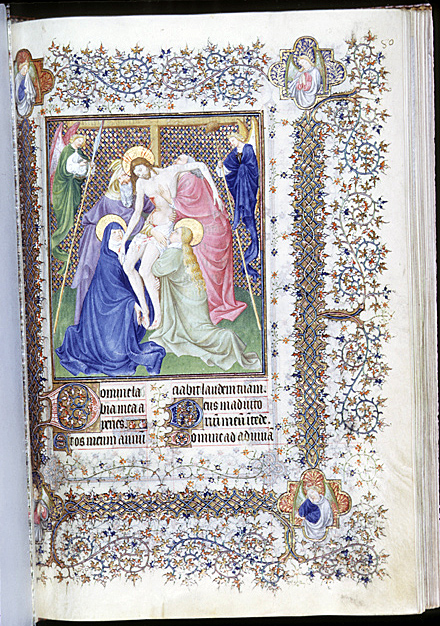 80
Domine la
bia mea a
peries. Et
os meum annū
ciabit laudem tuam.
Deus in adiuto
riū meū intēde.
Domine ad adiuua